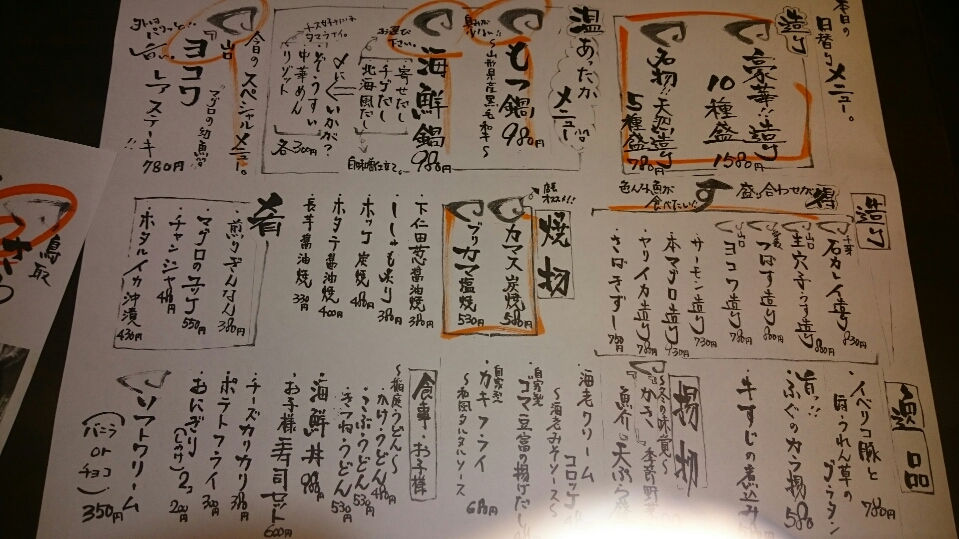 本日の
日替りメニュー。
造り
豪華!!造り
10種盛
1580円
名物!!天然造り
5種盛
780円
温あったか
メニュー
もつ鍋 980円
〜山形県産黒毛和牛〜
海鮮鍋
980円
お選び下さい。
・寄せだし
・チゲだし
・北海風だし
〆にいかが?
・ぞうすい
・中華めん
・リゾット
各300円
今日のスペシャルメニュー。
山口
ヨコワ
マグロの幼魚!!
レアステーキ
780円
色んな魚が
食べたい!!
盛り合わせが
得
す
造り
石カレイ造り 830円
山口
生穴子うす造り 880円
つばす造り 800円
山口
ヨコワ造り 780円
サーモン造り 730円
本マグロ造り 930円
ヤリイカ造り 780円
さばきずし 750円
焼物
カマス炭焼 580円
ブリカマ塩焼 530円
・下仁田葱醤油焼 380円
・ししゃも炙り 380円
・ホッケ炭焼 480円
・ホタテ醤油焼 400円
・長芋醤油焼 330円
肴
・煎りぎんなん 380円
・マグロのユッケ 550円
・チャンジャ 480円
・ホタルイカ沖漬 430円
逸品
・イベリコ豚と
ほうれん草の
グラタン
780円
・ふぐのカラ揚 580
・牛すじの煮込み
揚物
〜冬の味覚〜
・海老クリーム
コロッケ
〜海老みそソース〜
自家製
・ゴマ豆富の揚げだし
自家製
・カキフライ
〜和風タルタルソース
680円
食事・お子様
〜稲庭うどん〜
・かけうどん 480円
・こぶうどん 530円
・きつねうどん 530円
・海鮮丼 980円
・お子様寿司セット
600円
・チーズカリカリ 380円
・ポテトフライ 300円
・おにぎり 2コ
200円
・ソフトクリーム
(バニラ or チョコ) 350円
鳥取